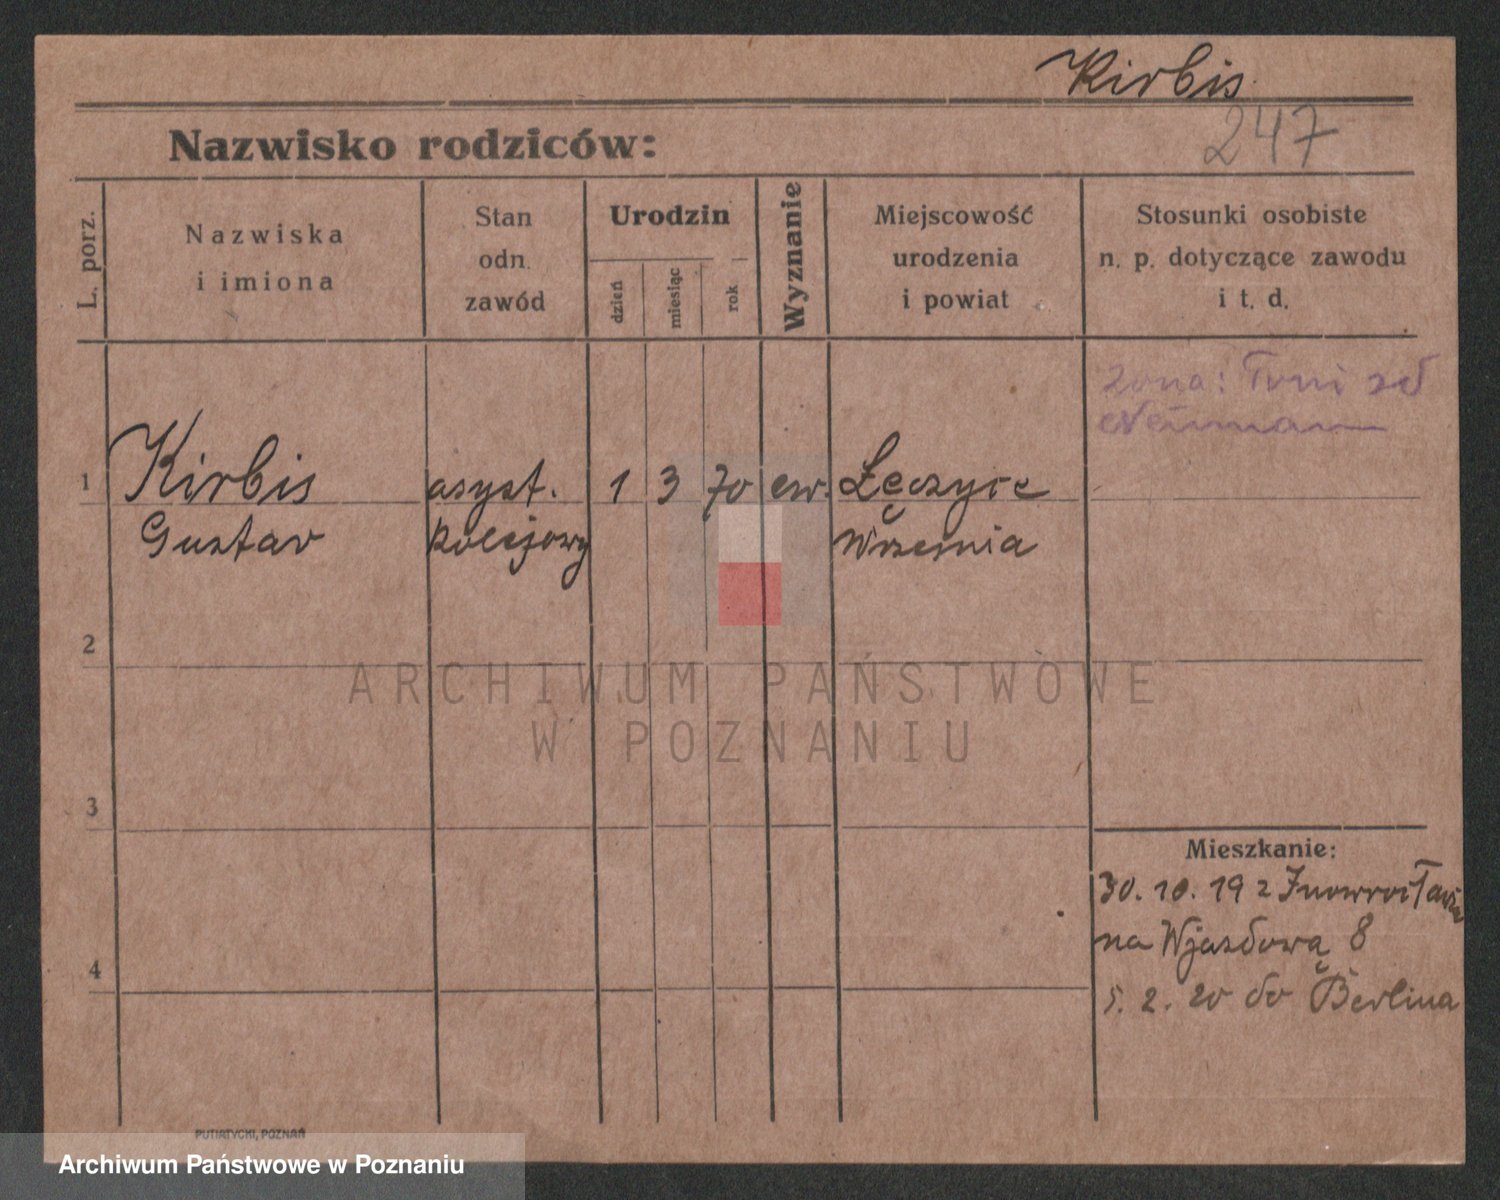 Kirbis
247
Nazwisko rodziców:
L. porz.
Nazwiska
i imiona
Stan
odn.
zawód
Urodzin
dzień
miesiąc
rok
Wyznanie
Miejscowość
urodzenia
i powiat
Stosunki osobiste
n. p. dotyczące zawodu
i t. d.
żona: Toni zd
Neuman
1 Kirbis asyst. 1 3 70 ew. Łęczyce
Gustav kolejowy Września
2
3
4
Mieszkanie:
30. 10. 19 z Inowrocławia
na Wjazdową 8
5. 2. 20 do Berlina
ARCHIWUM PAŃSTWOWE
W POZNANIU
PUTIATYCKI, POZNAŃ
Archiwum Państwowe w Poznaniu